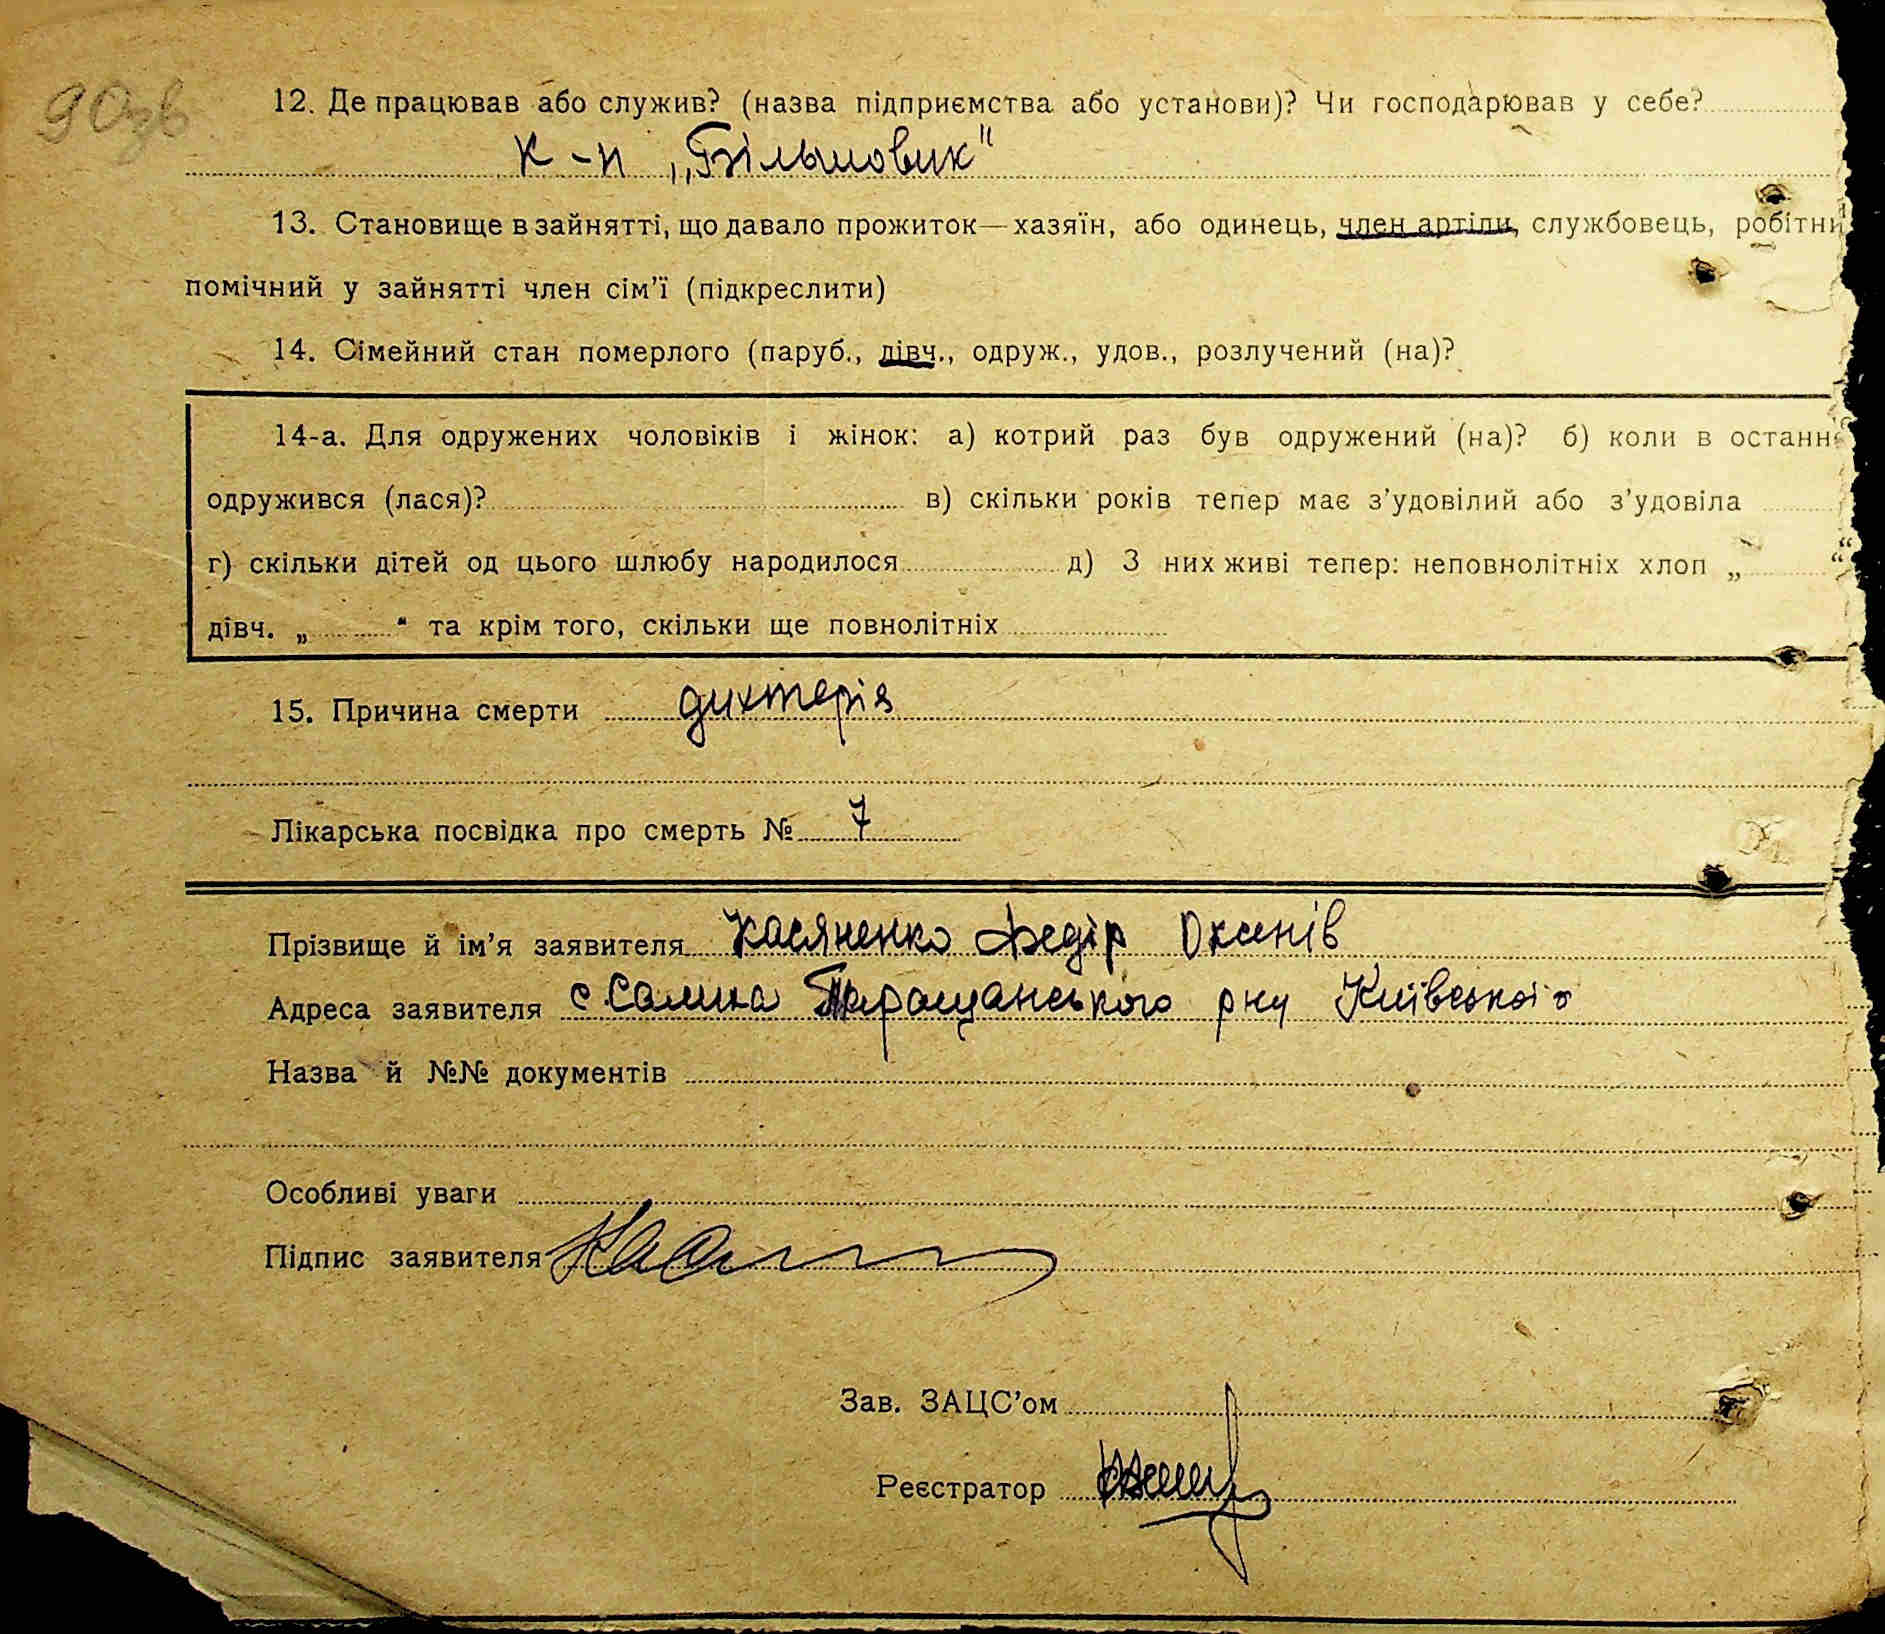 90зв
12. Де працював або служив? (назва підприємства або установи)? Чи господарював у себе?
к-п „Більшовик"
13. Становище в зайнятті, що давало прожиток—хазяїн, або одинець, член артіли, службовець, робітни
помічний у зайнятті член сім'ї (підкреслити)
14. Сімейний стан померлого (паруб., дівч., одруж., удов., розлучений (на)?
14-а. Для одружених чоловіків і жінок: а) котрий раз був одружений (на)? б) коли в останнє
одружився (лася)? в) скільки років тепер має з'удовілий або з'удовіла
г) скільки дітей од цього шлюбу народилося д) З них живі тепер: неповнолітніх хлоп „ “
дівч. „ “ та крім того, скільки ще повнолітніх
15. Причина смерти дихтерія
Лікарська посвідка про смерть № 7
Прізвище й ім'я заявителя Касяненко Федір
Адреса заявителя с Таращанського рну Київської о
Назва й №№ документів
Особливі уваги
Підпис заявителя
Зав. ЗАЦС'ом
Реєстратор